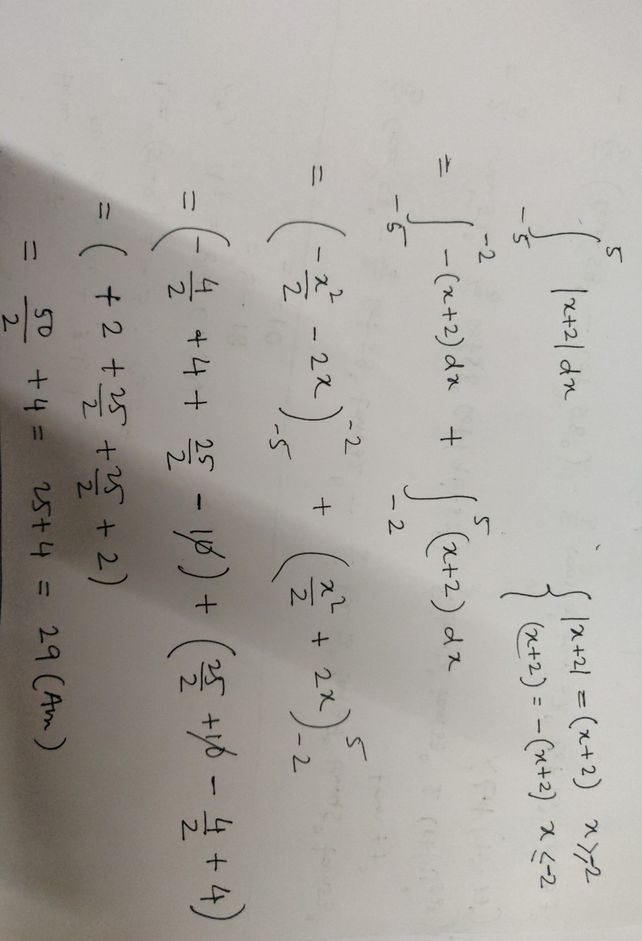 ∫_{-5}^{5} |x+2| dx { |x+2| = (x+2) x>,-2
(x+2) = -(x+2) x≤-2
= ∫_{-5}^{-2} -(x+2) dx + ∫_{-2}^{5} (x+2) dx
= (-x²/2 - 2x)_{-5}^{-2} + (x²/2 + 2x)_{-2}^{5}
= (-4/2 + 4 + 25/2 - 10) + (25/2 + 10 - 4/2 + 4)
= ( + 2 + 25/2 + 25/2 + 2)
= 50/2 + 4 = 25+4 = 29 (Am)